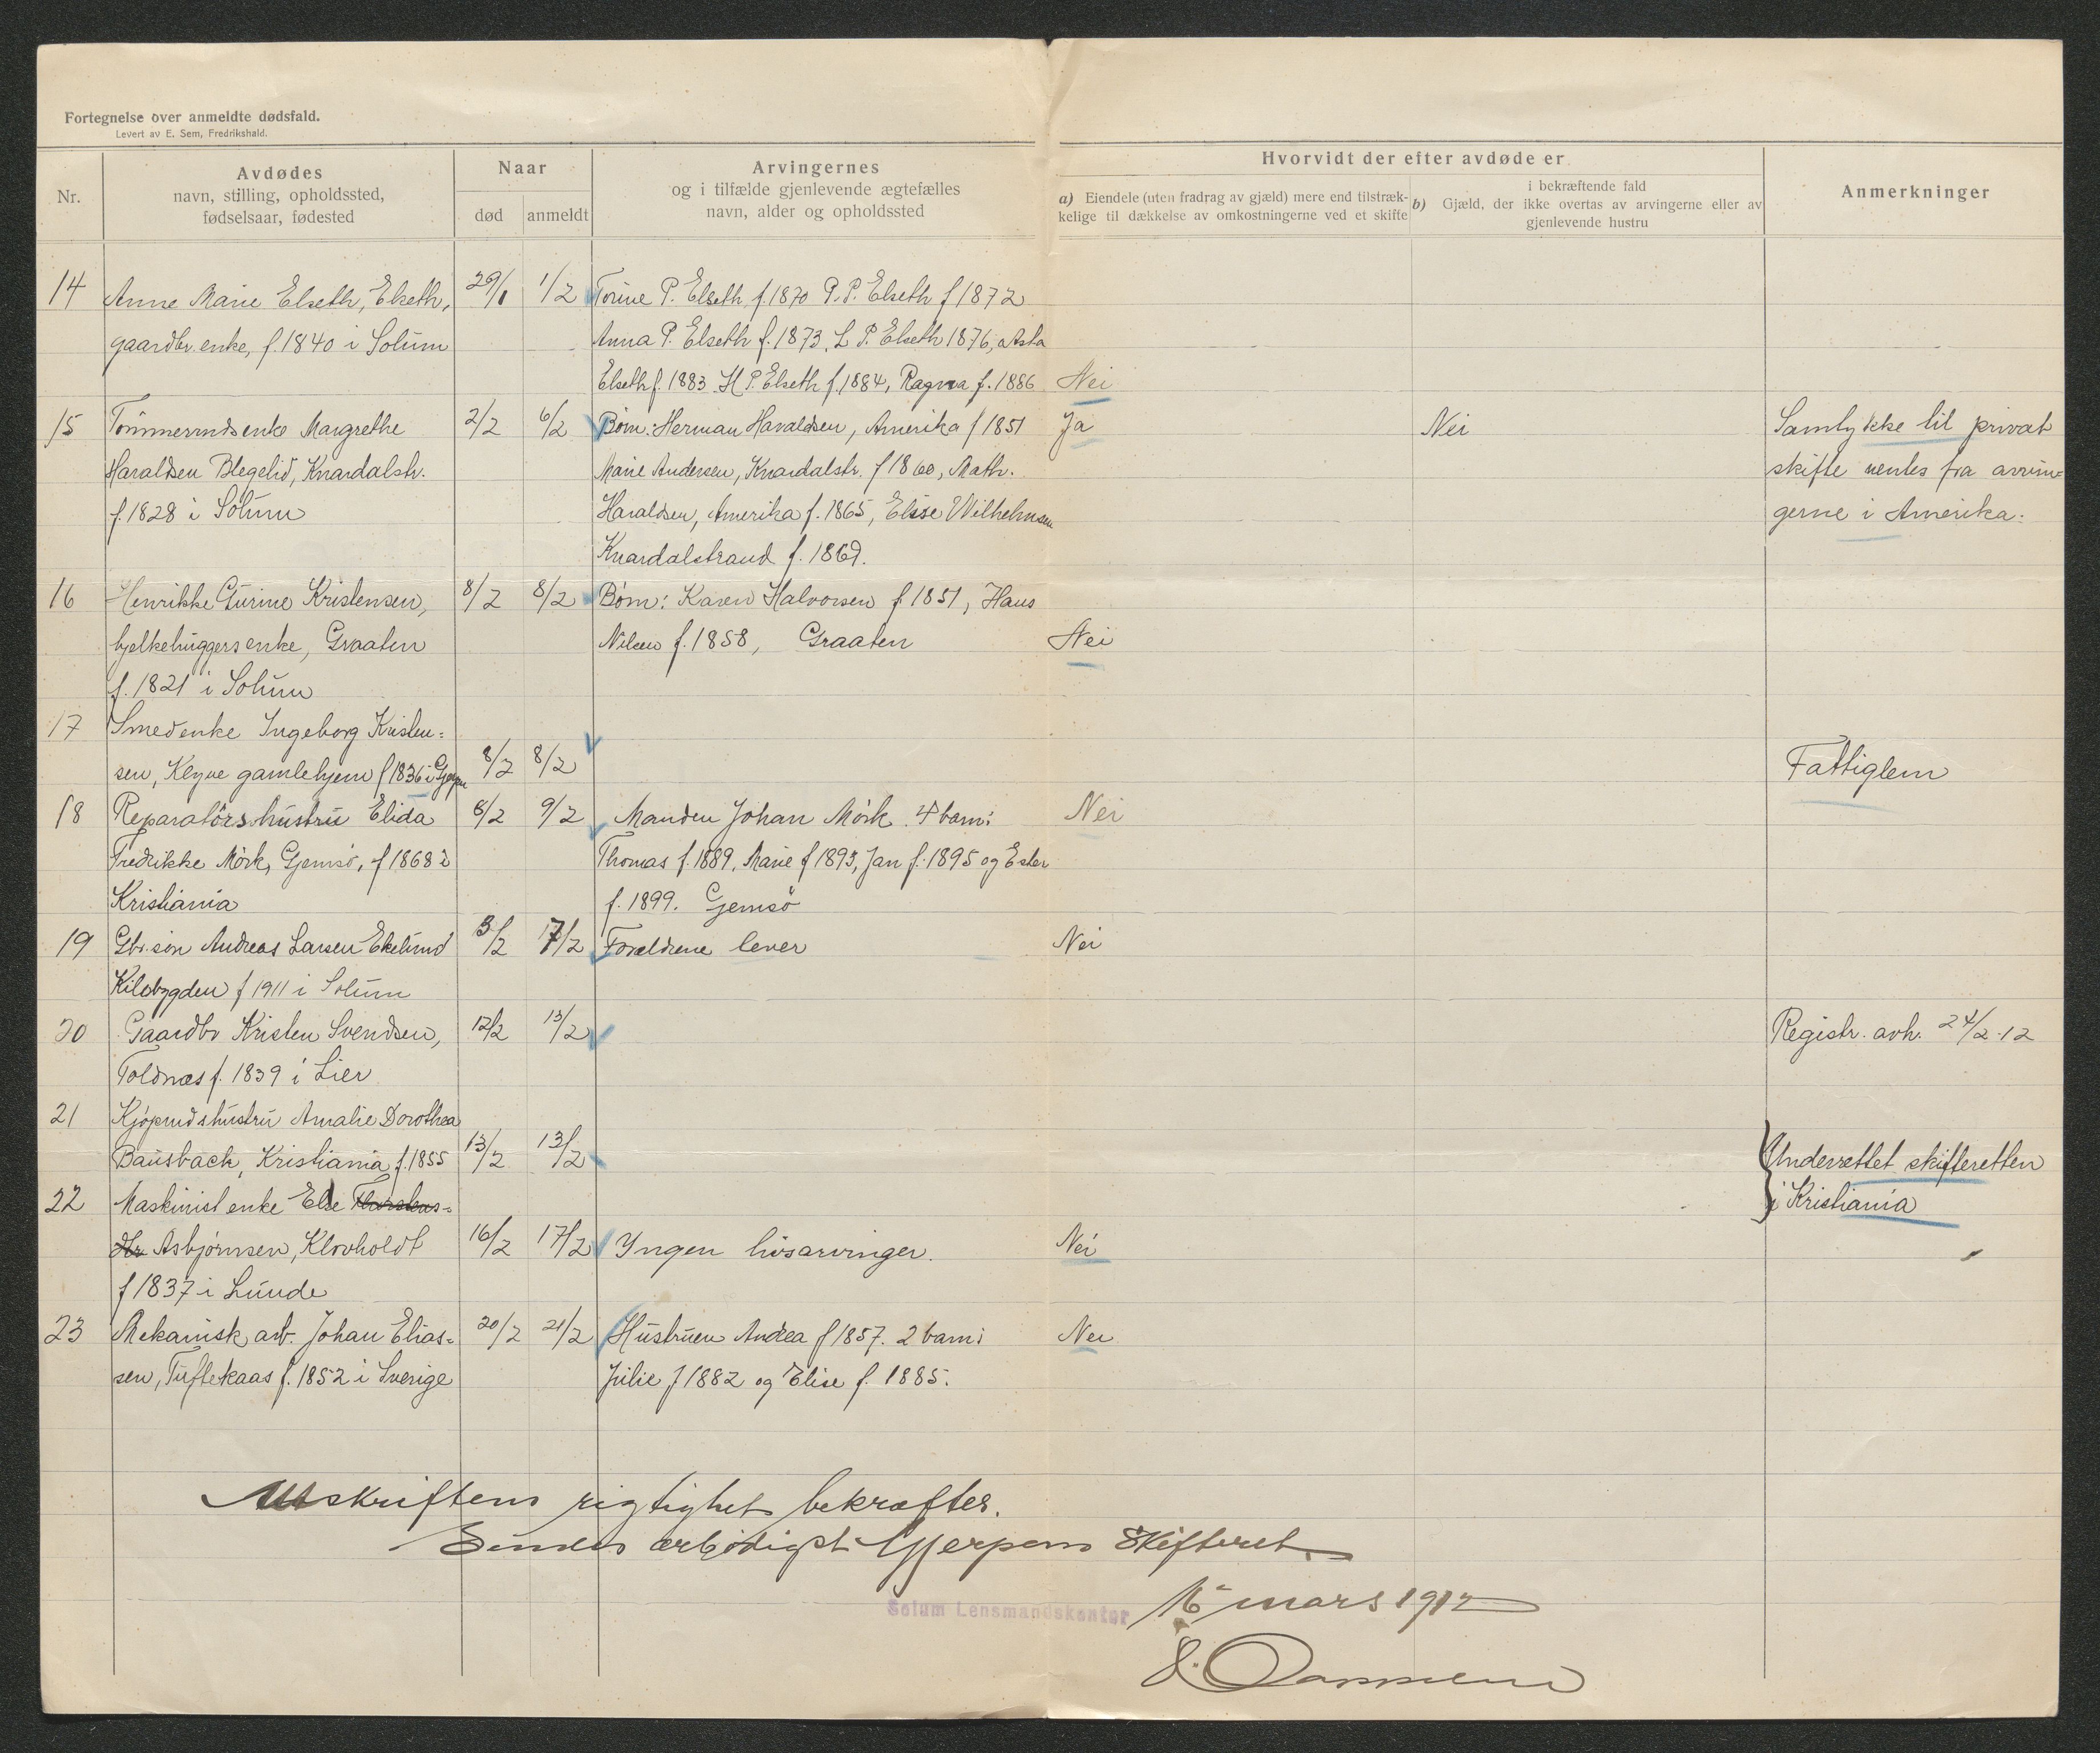 Fortegnelse over anmeldte dødsfald.
Levert av E. Sem, Fredrikshald.
Nr.
Avdødes
navn, stilling, opholdssted,
fødselsaar, fødested
Naar
død
anmeldt
Arvingernes
og i tilfælde gjenlevende ægtefælles
navn, alder og opholdssted
Hvorvidt der efter avdøde er
a) Eiendele (uten fradrag av gjæld) mere end tilstræk-
kelige til dækkelse av omkostningerne ved et skifte
i bekræftende fald
b) Gjæld, der ikke overtas av arvingerne eller av
gjenlevende hustru
Anmerkninger
14 Anne Marie Elseth, Elseth, 29/1 1/2 Torine P. Elseth f. 1870 P. P. Elseth f 1872
gaardbr. enke, f. 1840 i Solum Anna P. Elseth f. 1873, L P. Elseth 1876, Asta
Elseth f. 1883 H P. Elseth f. 1884, Ragna f. 1886 Nei
15 Tømmermds enke Margrethe 2/2 6/2 Børn: Herman Haraldsen, Amerika f 1851 Ja Nei Samtykke til privat
Haraldsen Blegelid, Knardalstr. Marie Andersen, Knardalstr. f 1860, Math. skifte ventes fra arvin-
f. 1828 i Solum Haraldsen, Amerika f. 1865, Elise Wilhelmsen gerne i Amerika.
Knardalstrand f. 1869.
16 Henrikke Gurine Kristensen, 8/2 8/2 Børn: Karen Halvorsen f 1851, Hans
bjelkehuggers enke, Graaten Nilsen f. 1858, Graaten Nei
f. 1821 i Solum
17 Smedenke Ingeborg Kristen=
sen, Klyve gamlehjem f 1836 i Gjerpen 8/2 8/2 Fattiglem
18 Reparatørs hustru Elida 8/2 9/2 Manden Johan Mørk. 4 barn: Nei
Fredrikke Mørk, Gjemsø, f 1868 i Thomas f. 1889, Marie f 1893, Jan f. 1895 og Ester
Kristiania f. 1899. Gjemsø
19 Gbr. søn Andreas Larsen Ekelund 3/2 17/2 Forældrene lever Nei
Kilebygden f 1911 i Solum
20 Gaardbr Kristen Svendsen, 12/2 13/2 Registr. avh. 24/2.12
Toldnæs f. 1839 i Lier
21 Kjøpmdshustru Amalie Dorothea
Bausback, Kristiania f. 1855 13/2 13/2 Underrettet skifteretten
22 Maskinist enke Else Thorstens= i Kristiania
dtr Asbjørnsen, Klovholdt 16/2 17/2 Yngen livsarvinger. Nei
f 1837 i Lunde
23 Mekanisk arb. Johan Elias= 20/2 21/2 Hustruen Andea f 1857. 2 barn: Nei
sen, Tuftekaas f. 1852 i Sverige Julie f 1882 og Elise f. 1885.
Utskriftens rigtighet bekræftes.
Sendes ærbødigst Gjerpens Skifteret
Solum Lensmandskontor 16 mars 1912